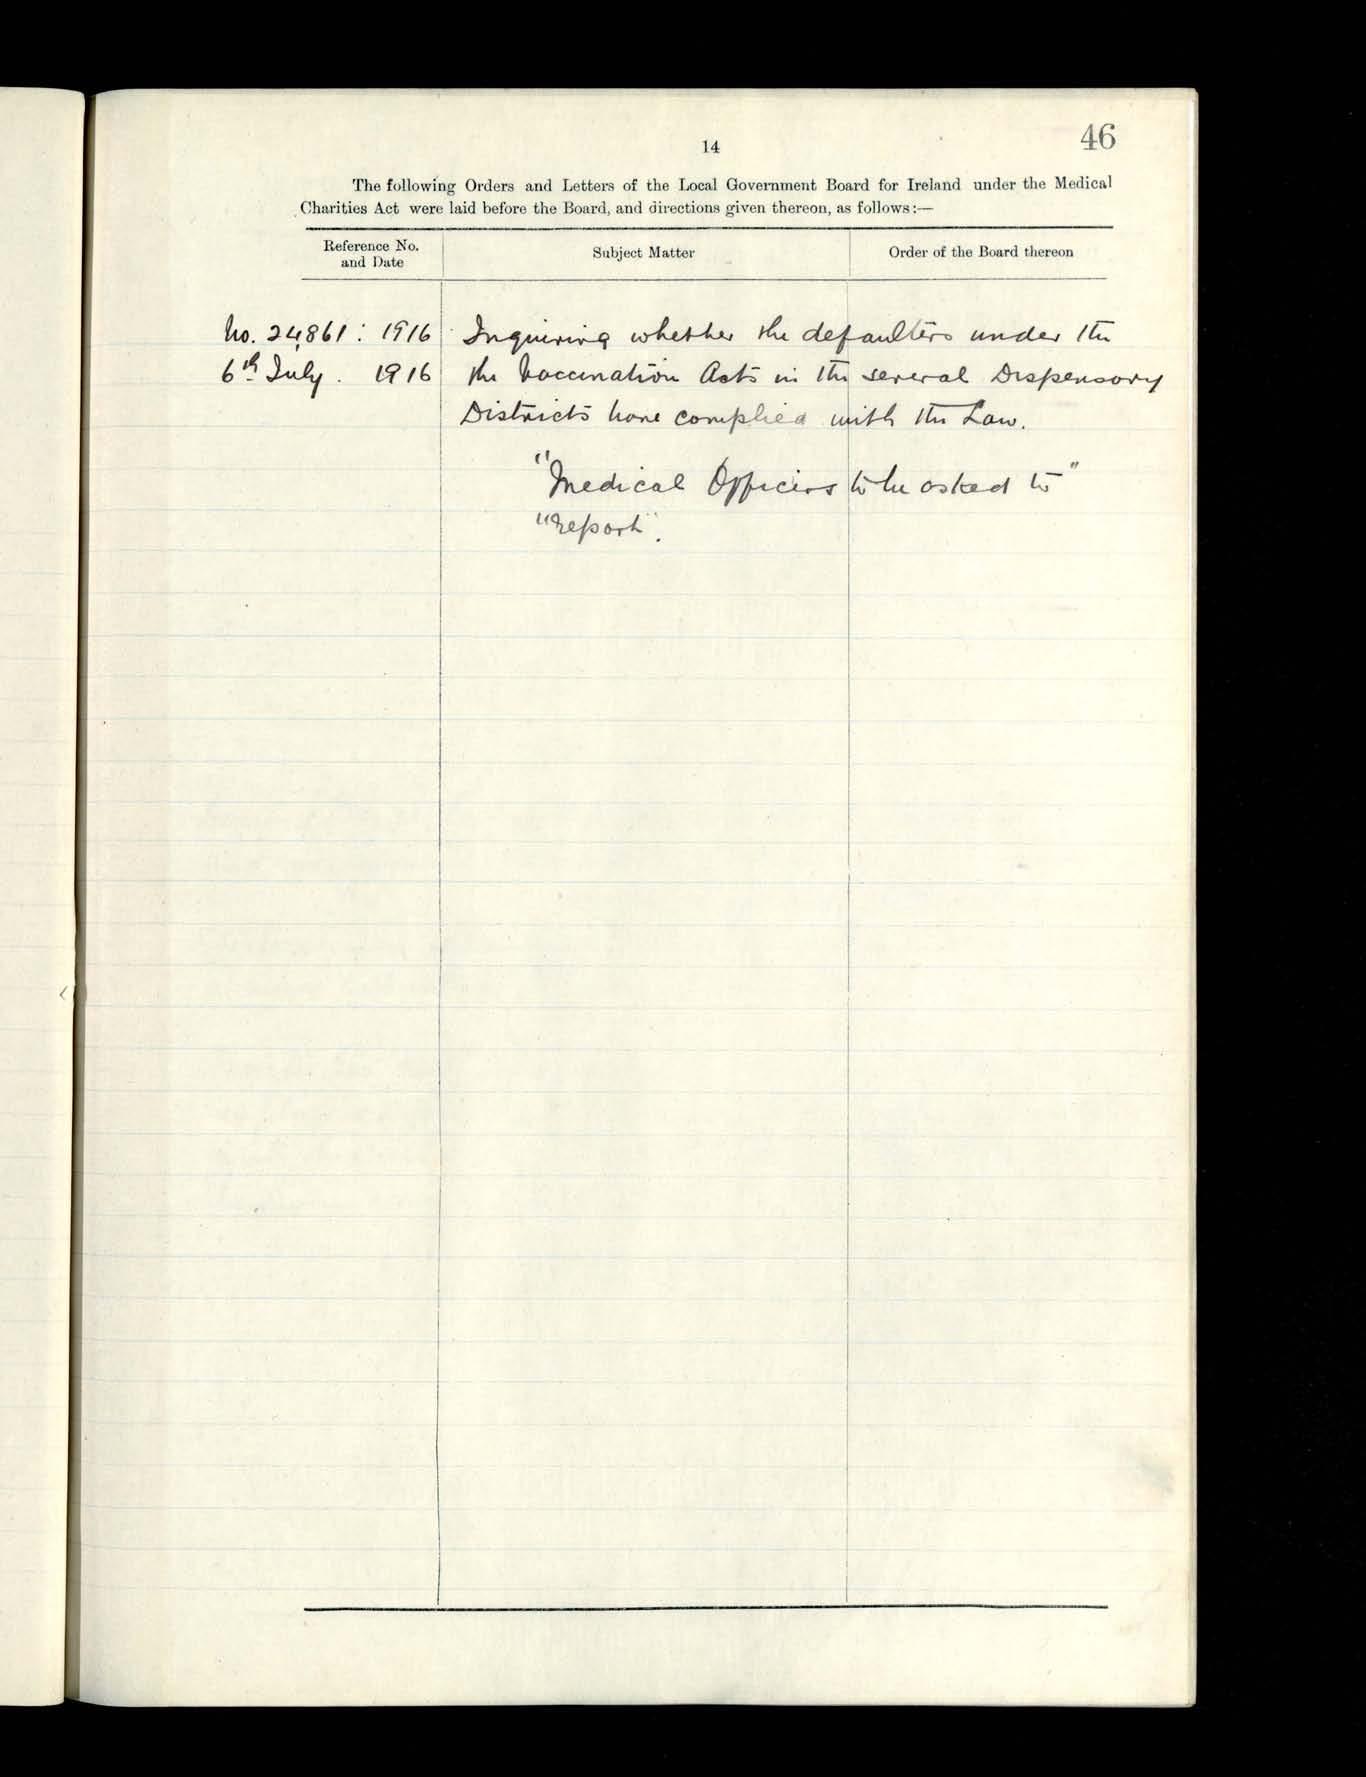 46
14
The following Orders and Letters of the Local Government Board for Ireland under the Medical
Charities Act were laid before the Board, and directions given thereon, as follows:—
Reference No.
and Date
Subject Matter
Order of the Board thereon
No. 24,861 : 1916 Inquiring whether the defaulters under the
6th July. 1916 the Vaccination Acts in the several Dispensary
Districts have complied with the Law.
"Medical Officers to be asked to"
"report".